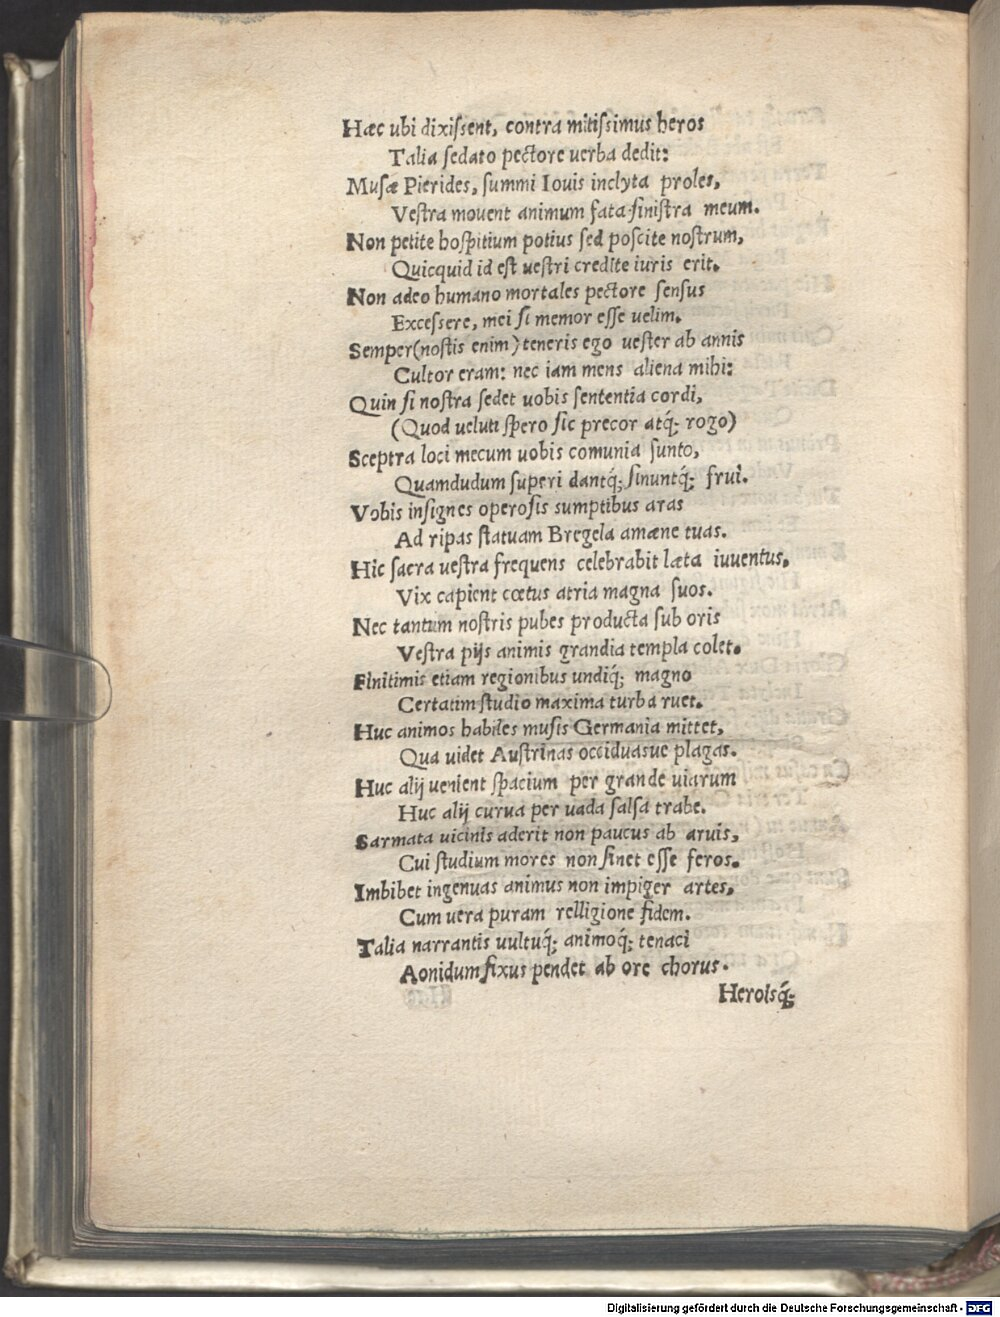 Hæc ubi dixissent, contra mitissimus heros
Talia sedato pectore uerba dedit:
Musæ Pierides, summi Iouis inclyta proles,
Vestra mouent animum fata sinistra meum.
Non petite hospitium potius sed poscite nostrum,
Quicquid id est uestri credite iuris erit.
Non adeo humano mortales pectore sensus
Excessere, mei si memor esse uelim.
Semper (nostis enim) teneris ego uester ab annis
Cultor eram: nec iam mens aliena mihi:
Quin si nostra sedet uobis sententia cordi,
(Quod ueluti spero sic precor atq́; rogo)
Sceptra loci mecum uobis comunia sunto,
Quamdudum superi dantq́; sinuntq́; frui.
Vobis insignes operosis sumptibus aras
Ad ripas statuam Bregela amæne tuas.
Hic sacra uestra frequens celebrabit læta iuuentus,
Vix capient cœtus atria magna suos.
Nec tantum nostris pubes producta sub oris
Vestra pijs animis grandia templa colet.
Finitimis etiam regionibus undiq́; magno
Certatim studio maxima turba ruet.
Huc animos habiles musis Germania mittet,
Qua uidet Austrinas occiduasue plagas.
Huc alij uenient spacium per grande uiarum
Huc alij curua per uada salsa trabe.
Sarmata uicinis aderit non paucus ab aruis,
Cui studium mores non sinet esse feros.
Imbibet ingenuas animus non impiger artes,
Cum uera puram relligione fidem.
Talia narrantis uultuq́; animoq́; tenaci
Aonidum fixus pendet ab ore chorus.
Heroisq́;
Digitalisierung gefördert durch die Deutsche Forschungsgemeinschaft - DFG